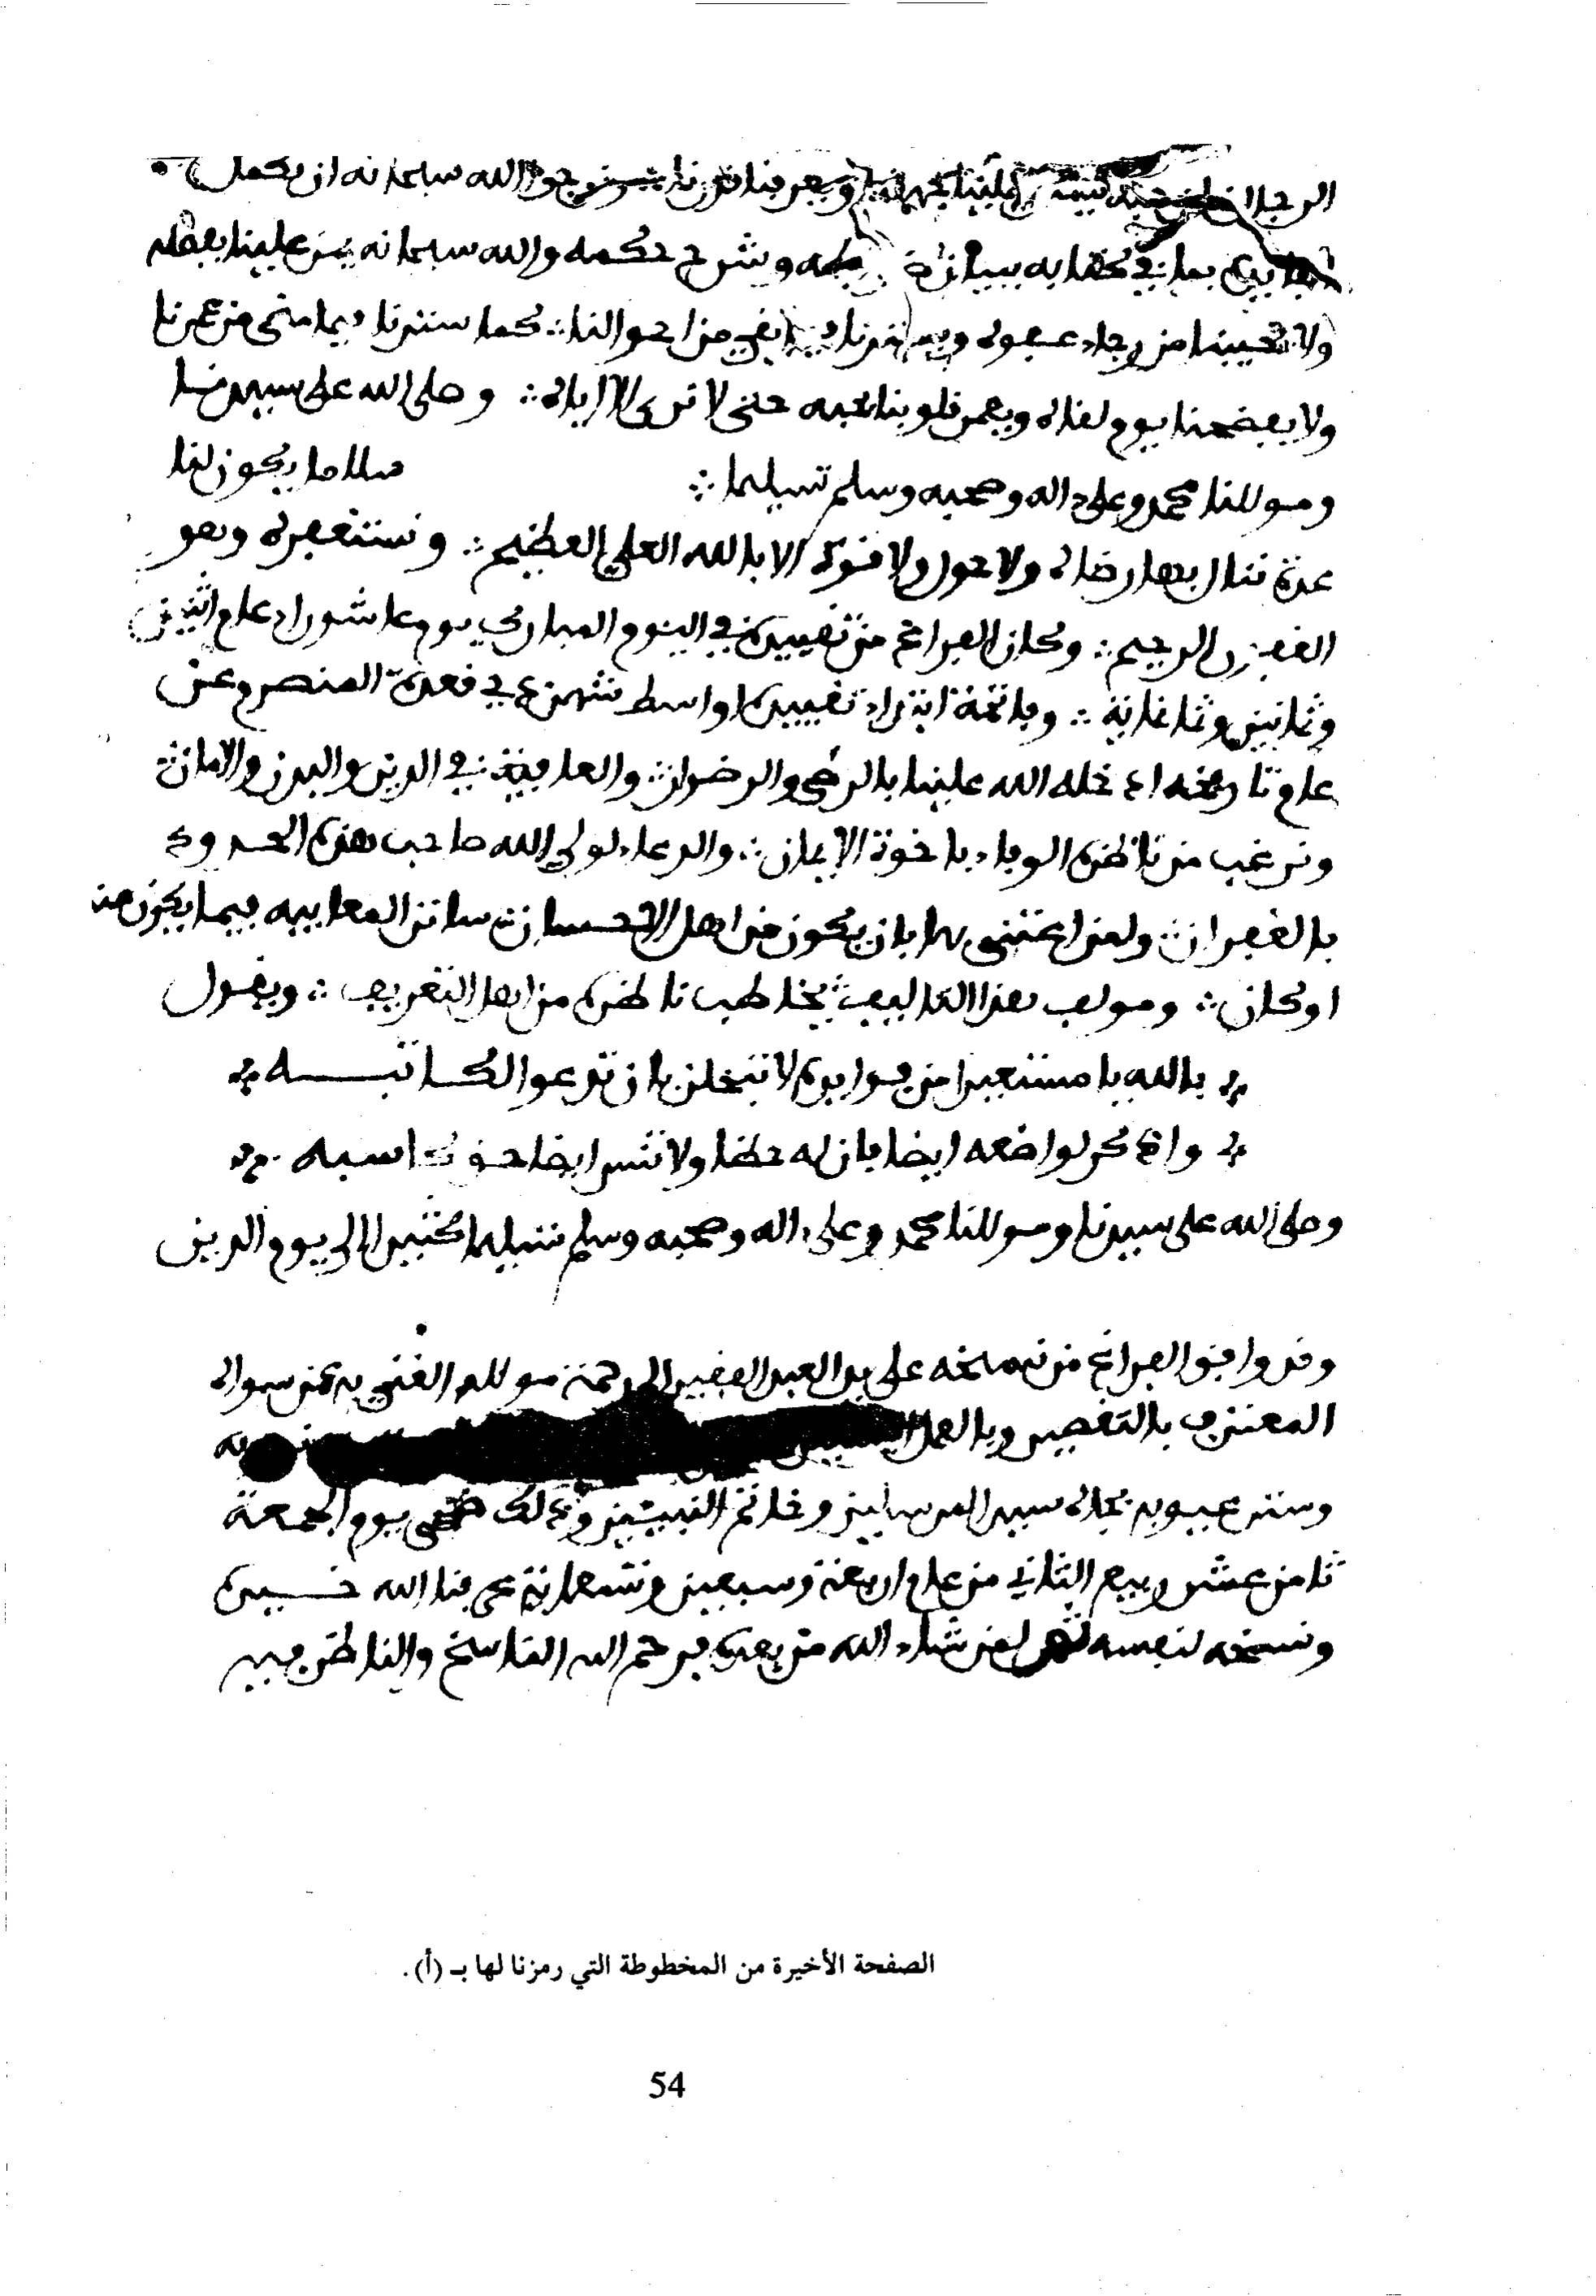 الرجا وبعرفنا قدرنا نرجوا الله سبحانه ان يكمل
بيانه وشرح حكمه والله سبحانه يمن علينا بفضله
ولا يخيبنا من رجاء عفوه ويسترنا فيما بقي من احوالنا كما سترنا فيما مضى من عمرنا
ولا يفضحنا يوم لقاه ويعمر قلوبنا بحبه حتى لا نرى الا اياه وصلى الله على سيدنا
ومولانا محمد وعلى ءاله وصحبه وسلم تسليما سلاما يكون لنا
عدة ننال بها رضاه ولا حول ولا قوة الا بالله العلي العظيم ونستغفره وهو
الغفور الرحيم وكان الفراغ من تقييده في اليوم المبارك يوم عاشوراء عام اثنين
وثمانين وثمانمائة وباتفة ابتداء تقييده اواسط شهر ذي قعدة المنصرم عن
عام تاريخه ادخله الله علينا بالرضى والرضوان والعافية في الدين والبدن والامان
ونرغب من ناظره الوفاء باخوة الايمان والدعاء لولي الله صاحب هذه الحدود
بالغفران ولمن اعتنى بها بان يكون من اهل الاحسان ساتر المعايبه فيما يكون منه
او كان ومولف هذا التاليف يخاطب ناظره من اهل التعريف ويقول
بالله يا مستفيدا من فوايده لا تبخلن بان تدعوا لكاتبه
واذكر لواضعه ايضا فان له حظا ولا تنس ايضا حق كاسبه
وصلى الله على سيدنا ومولانا محمد وعلى ءاله وصحبه وسلم تسليما كثيرا الى يوم الدين
وقد وافق الفراغ من نسخه على يد العبد الفقير الى رحمة مولاه الغني به عمن سواه
المعترف بالتقصير وبالعمل
وستر عيوبه بجاه سيد المرسلين وخاتم النبيئين وذلك ضحى يوم الجمعة
ثامن عشر ربيع الثاني من عام اربعة وسبعين وتسعمائة عرفنا الله خيره
ونسخه لنفسه ثم لمن شاء الله من بعده فرحم الله الناسخ والناظر فيه
الصفحة الأخيرة من المخطوطة التي رمزنا لها بـ (أ).
54